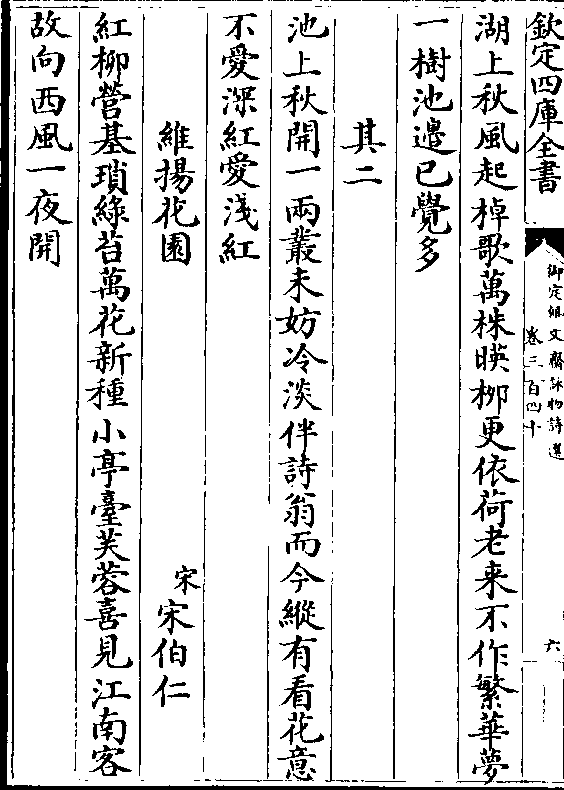 欽定四庫全書
御定佩文齋詠物詩選
卷三百四十
六
湖上秋風起棹歌萬株暎柳更依荷老来不作繁華夢
一樹池邉已覺多
其二
池上秋開一兩叢未妨冷淡伴詩翁而今縱有看花意
不愛深紅愛淺紅
維揚花園
宋宋伯仁
紅柳營基瑣綠苔萬花新種小亭臺芙蓉喜見江南客
故向西風一夜開